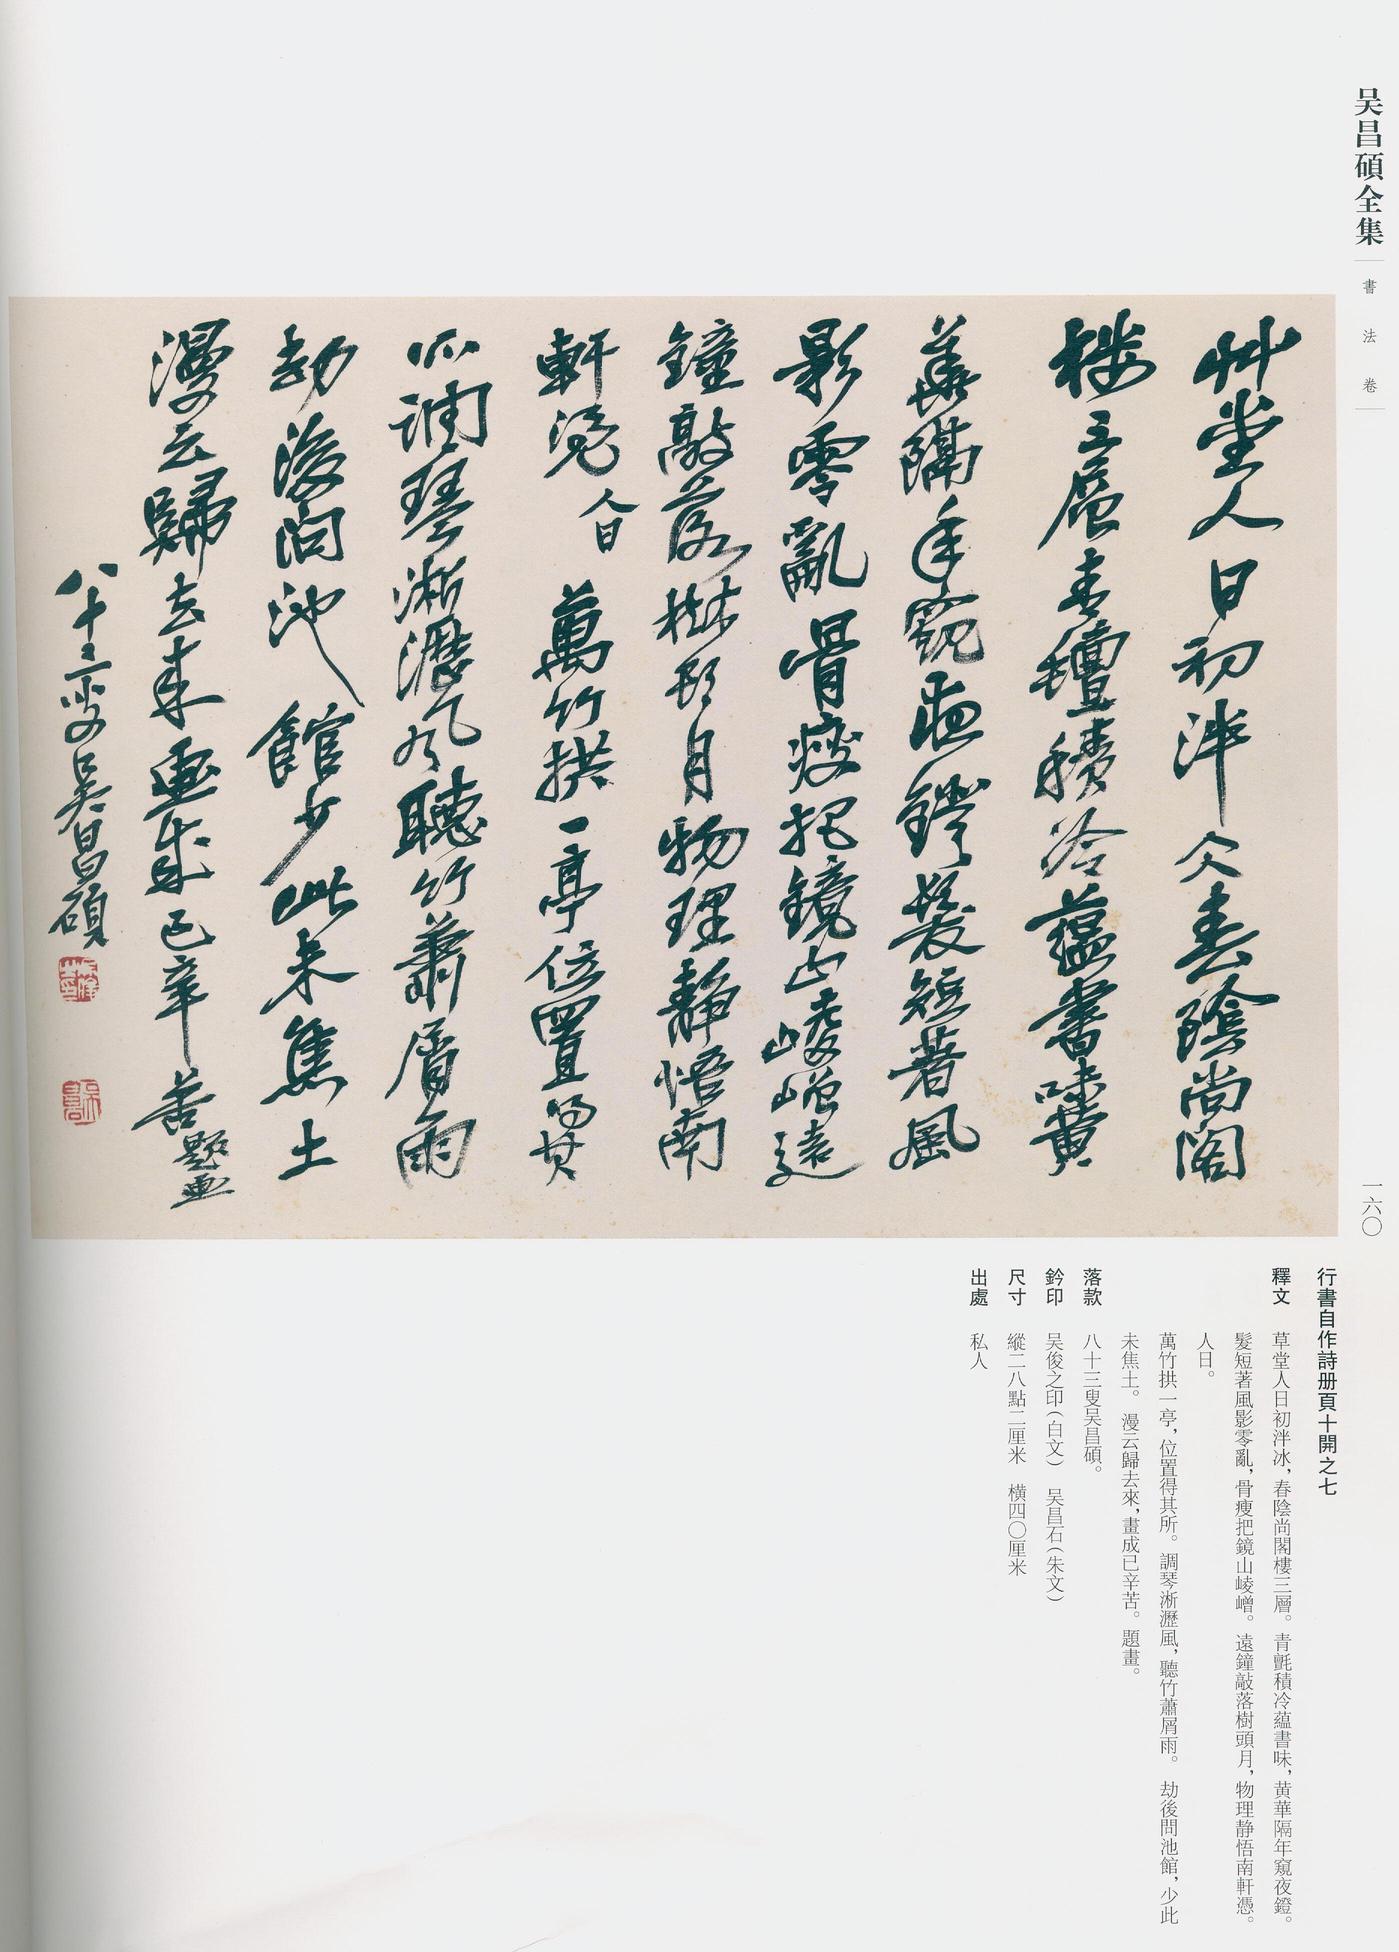 吴昌碩全集
書法卷
一六〇
艸堂人日初泮仌春陰尚閣
樓三層青氊積冷蘊書味黄
華隔年窺夜鐙髮短著風
影零亂骨瘦把鏡山崚嶒遠
鐘敲落樹頭月物理静悟南
軒凭 人日 萬竹拱一亭位置得其
所調琴淅瀝風聽竹蕭屑雨
劫後問池館少此未焦土
漫云歸去來畫成已辛苦 題畫
八十三叟吴昌碩
行書自作詩册頁十開之七
釋文 草堂人日初泮冰，春陰尚閣樓三層。青氈積冷蘊書味，黄華隔年窺夜鐙。
髮短著風影零亂，骨瘦把鏡山崚嶒。遠鐘敲落樹頭月，物理静悟南軒憑。
人日。
萬竹拱一亭，位置得其所。調琴淅瀝風，聽竹蕭屑雨。劫後問池館，少此
未焦土。漫云歸去來，畫成已辛苦。題畫。
落款 八十三叟吴昌碩。
鈐印 吴俊之印（白文） 吴昌石（朱文）
尺寸 縱二八點二厘米 横四〇厘米
出處 私人